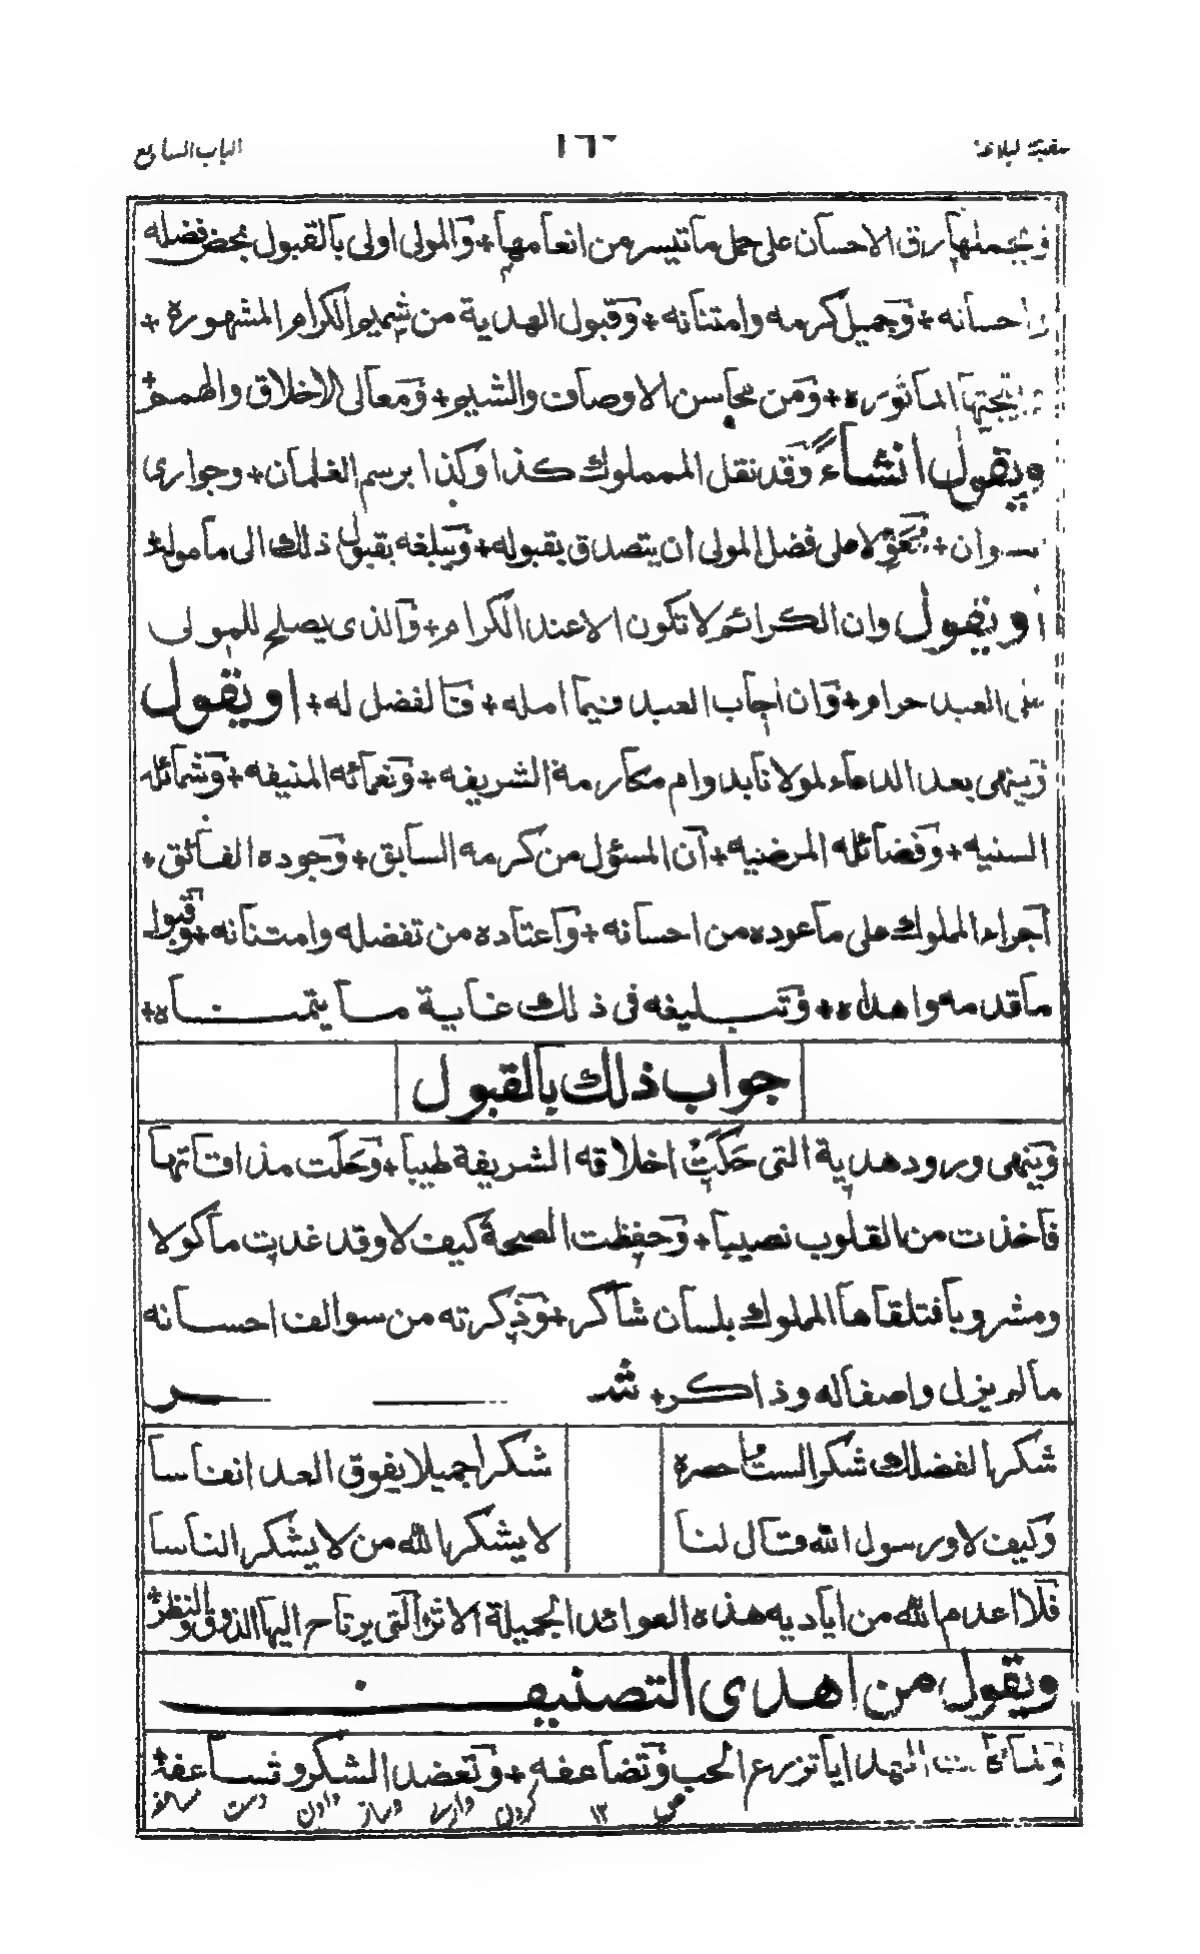 الباب السابع
١٦٠
رق الاحسان على حمل ما تيسر من انعامها + والمولى اولى بالقبول بمحض فضله
واحسانه + وجميل كرمه وامتنانه + وقبول الهدية من شيم الكرام المشهورة +
المأثوره + ومن محاسن الاوصاف والشيم + ومعالى الاخلاق والهمم +
ويقول انشاءً وقد نقل المملوك كذا وكذا برسم الغلمان + وجوارى
على فضل المولى ان يتصدق بقبوله + ويبلغه بقبول ذلك الى مأموله +
او يقول وان الكرائم لا تكون الا عند الكرام + والذى يصلح للمولى
على العبد حرام + وان اجاب العبد فيما امله + فالفضل له + او يقول
وينهى بعد الدعاء لمولانا بدوام مكارمه الشريفه + ونعمائه المنيفه + وشمائله
السنيه + وفضائله المرضيه + ان المسؤل من كرمه السابق + وجوده الفائق +
اجراء المملوك على ما عوده من احسانه + واعتاده من تفضله وامتنانه + وقبول
ما قدمه واهداه + وتبليغه فى ذلك غاية ما يتمناه +
جواب ذلك بالقبول
وينهى ورود هدية التى حكت اخلاقه الشريفة طيبا + وحلت مذاقاتها
فاخذت من القلوب نصيبا + وحفظت الصحة كيف لا وقد غدت مأكولا
ومشروبا فتلقاها المملوك بلسان شاكر + وذكرته من سوالف احسانه
ما لم يزل واصفا له وذاكر + شعر
شكرا لفضلك شكرا لست احصره شكرا جميلا يفوق العد انفاسا
وكيف لا ورسول الله قال لنا لا يشكر الله من لا يشكر الناسا
فلا اعدم الله من اياديه هذه العوائد الجميلة الاثر التى يرتاح اليها الذوق والنظر +
ويقول من اهدى التصنيف
الهدايا تزرع الحب وتضاعفه + وتعضد الشكر وتساعفه +